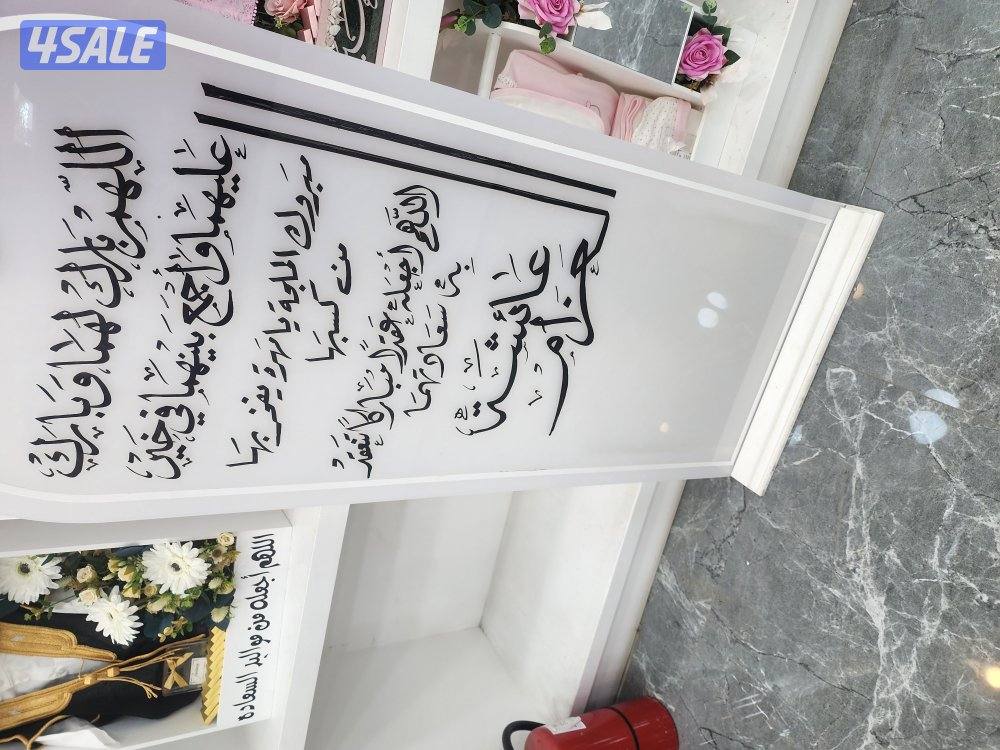 4SALE
اللهم بارك لهما وبارك
عليهما واجمع بينهما في خير
مبروك الملجة يا مهرة يفخر بها
من كسبها
اللهم اجعله عقدا مباركا تنعقد
به سعادتهما
عائشة
حزام
اللهم أجعله من بوالبر السعاده